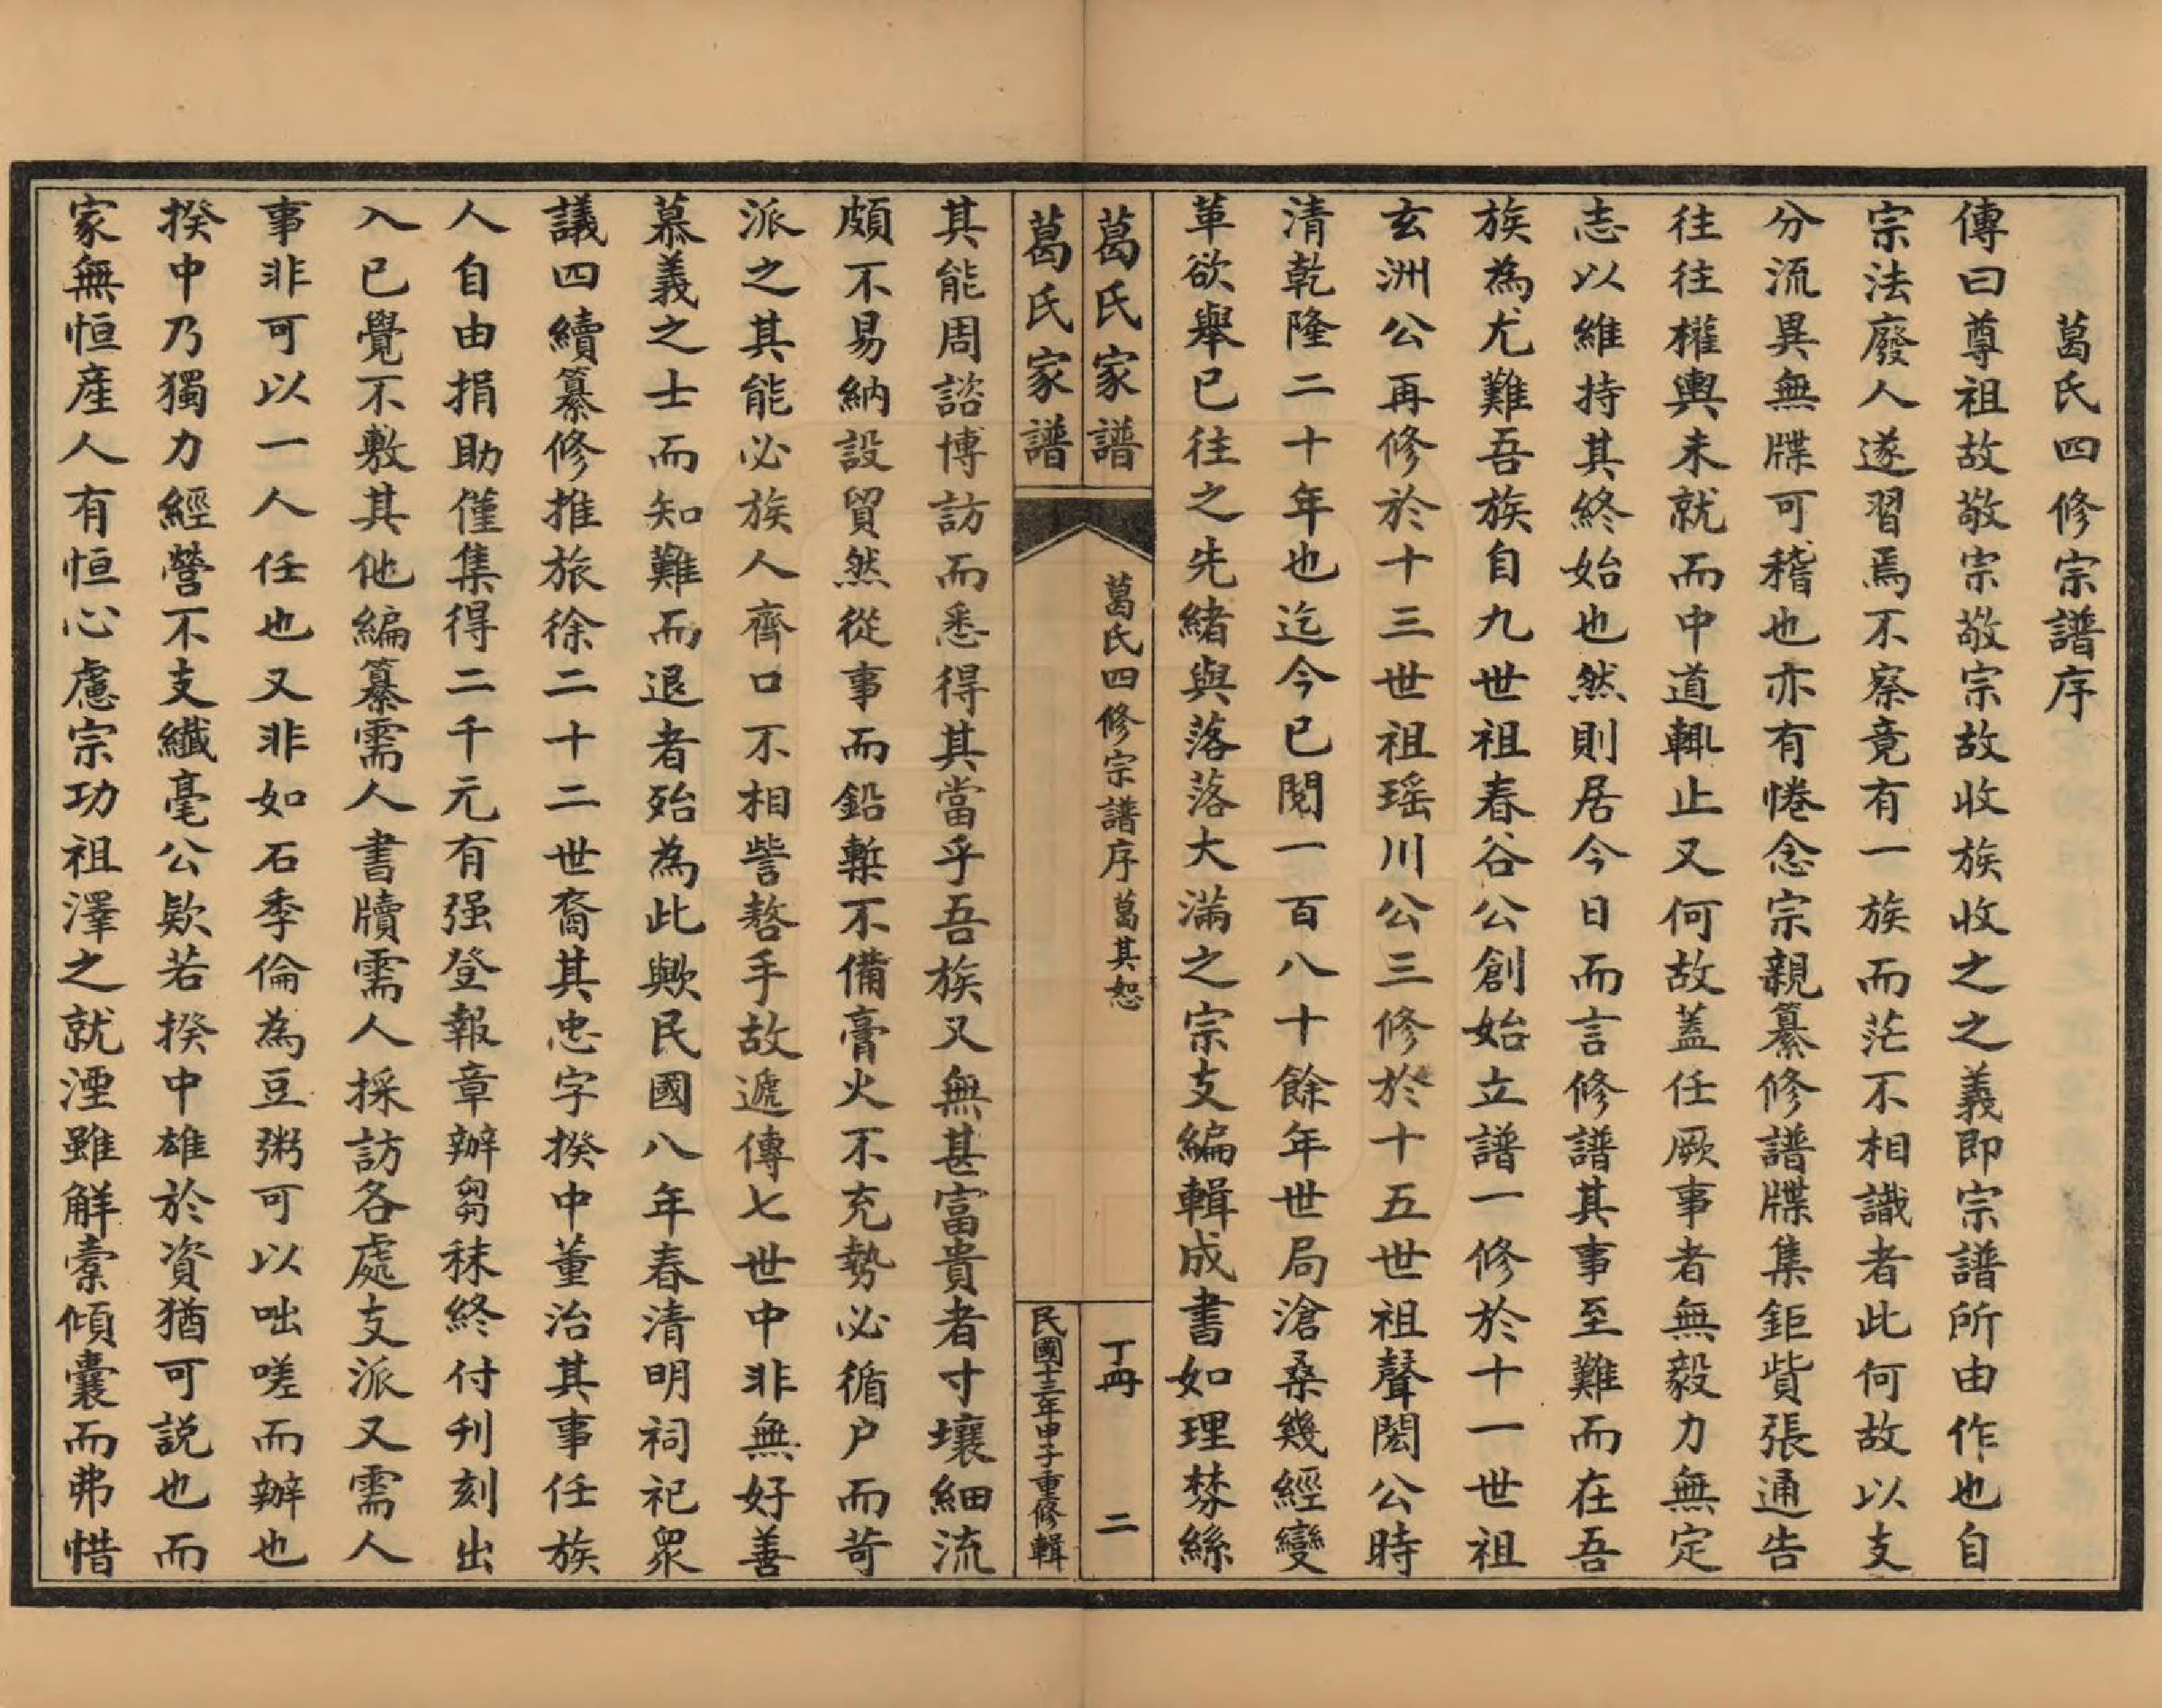 葛氏四修宗譜序
傳曰尊祖故敬宗敬宗故收族收之之義即宗譜所由作也自
宗法廢人遂習焉不察竟有一族而茫不相識者此何故以支
分流異無牒可稽也亦有惓念宗親纂修譜牒集鉅貲張通告
往往權輿未就而中道輒止又何故蓋任厥事者無毅力無定
志以維持其終始也然則居今日而言修譜其事至難而在吾
族為尤難吾族自九世祖春谷公創始立譜一修於十一世祖
玄洲公再修於十三世祖瑶川公三修於十五世祖聲閎公時
清乾隆二十年也迄今已閱一百八十餘年世局滄桑幾經變
革欲舉已往之先緒與落落大滿之宗支編輯成書如理棼絲
葛氏家譜
葛氏四修宗譜序 葛其恕
丁冊 二
葛氏家譜
民國十三年甲子重修輯
其能周諮博訪而悉得其當乎吾族又無甚富貴者寸壤細流
頗不易納設貿然從事而鉛槧不備膏火不充勢必循户而苛
派之其能必族人齊口不相訾謷乎故遞傳七世中非無好善
慕義之士而知難而退者殆為此歟民國八年春清明祠祀眾
議四續纂修推旅徐二十二世裔其忠字揆中董治其事任族
人自由捐助僅集得二千元有强登報章辦芻秣終付刋刻出
入已覺不敷其他編纂需人書牘需人採訪各處支派又需人
事非可以一人任也又非如石季倫為豆粥可以咄嗟而辦也
揆中乃獨力經營不支纖毫公欵若揆中雄於資猶可説也而
家無恒產人有恒心慮宗功祖澤之就湮雖解橐傾囊而弗惜